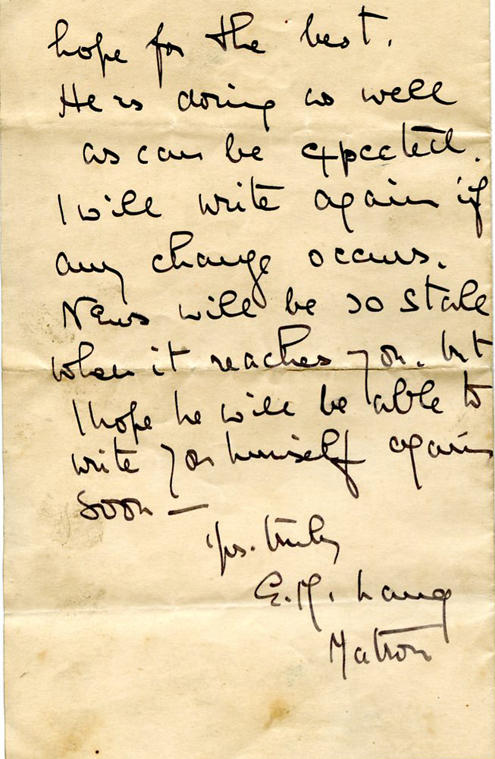 hope for the best.
He is doing as well
as can be expected.
I will write again if
any change occurs.
News will be so stale
when it reaches you. but
I hope he will be able to
write you himself again
soon —
Yrs. truly
E.M. Lang
Matron